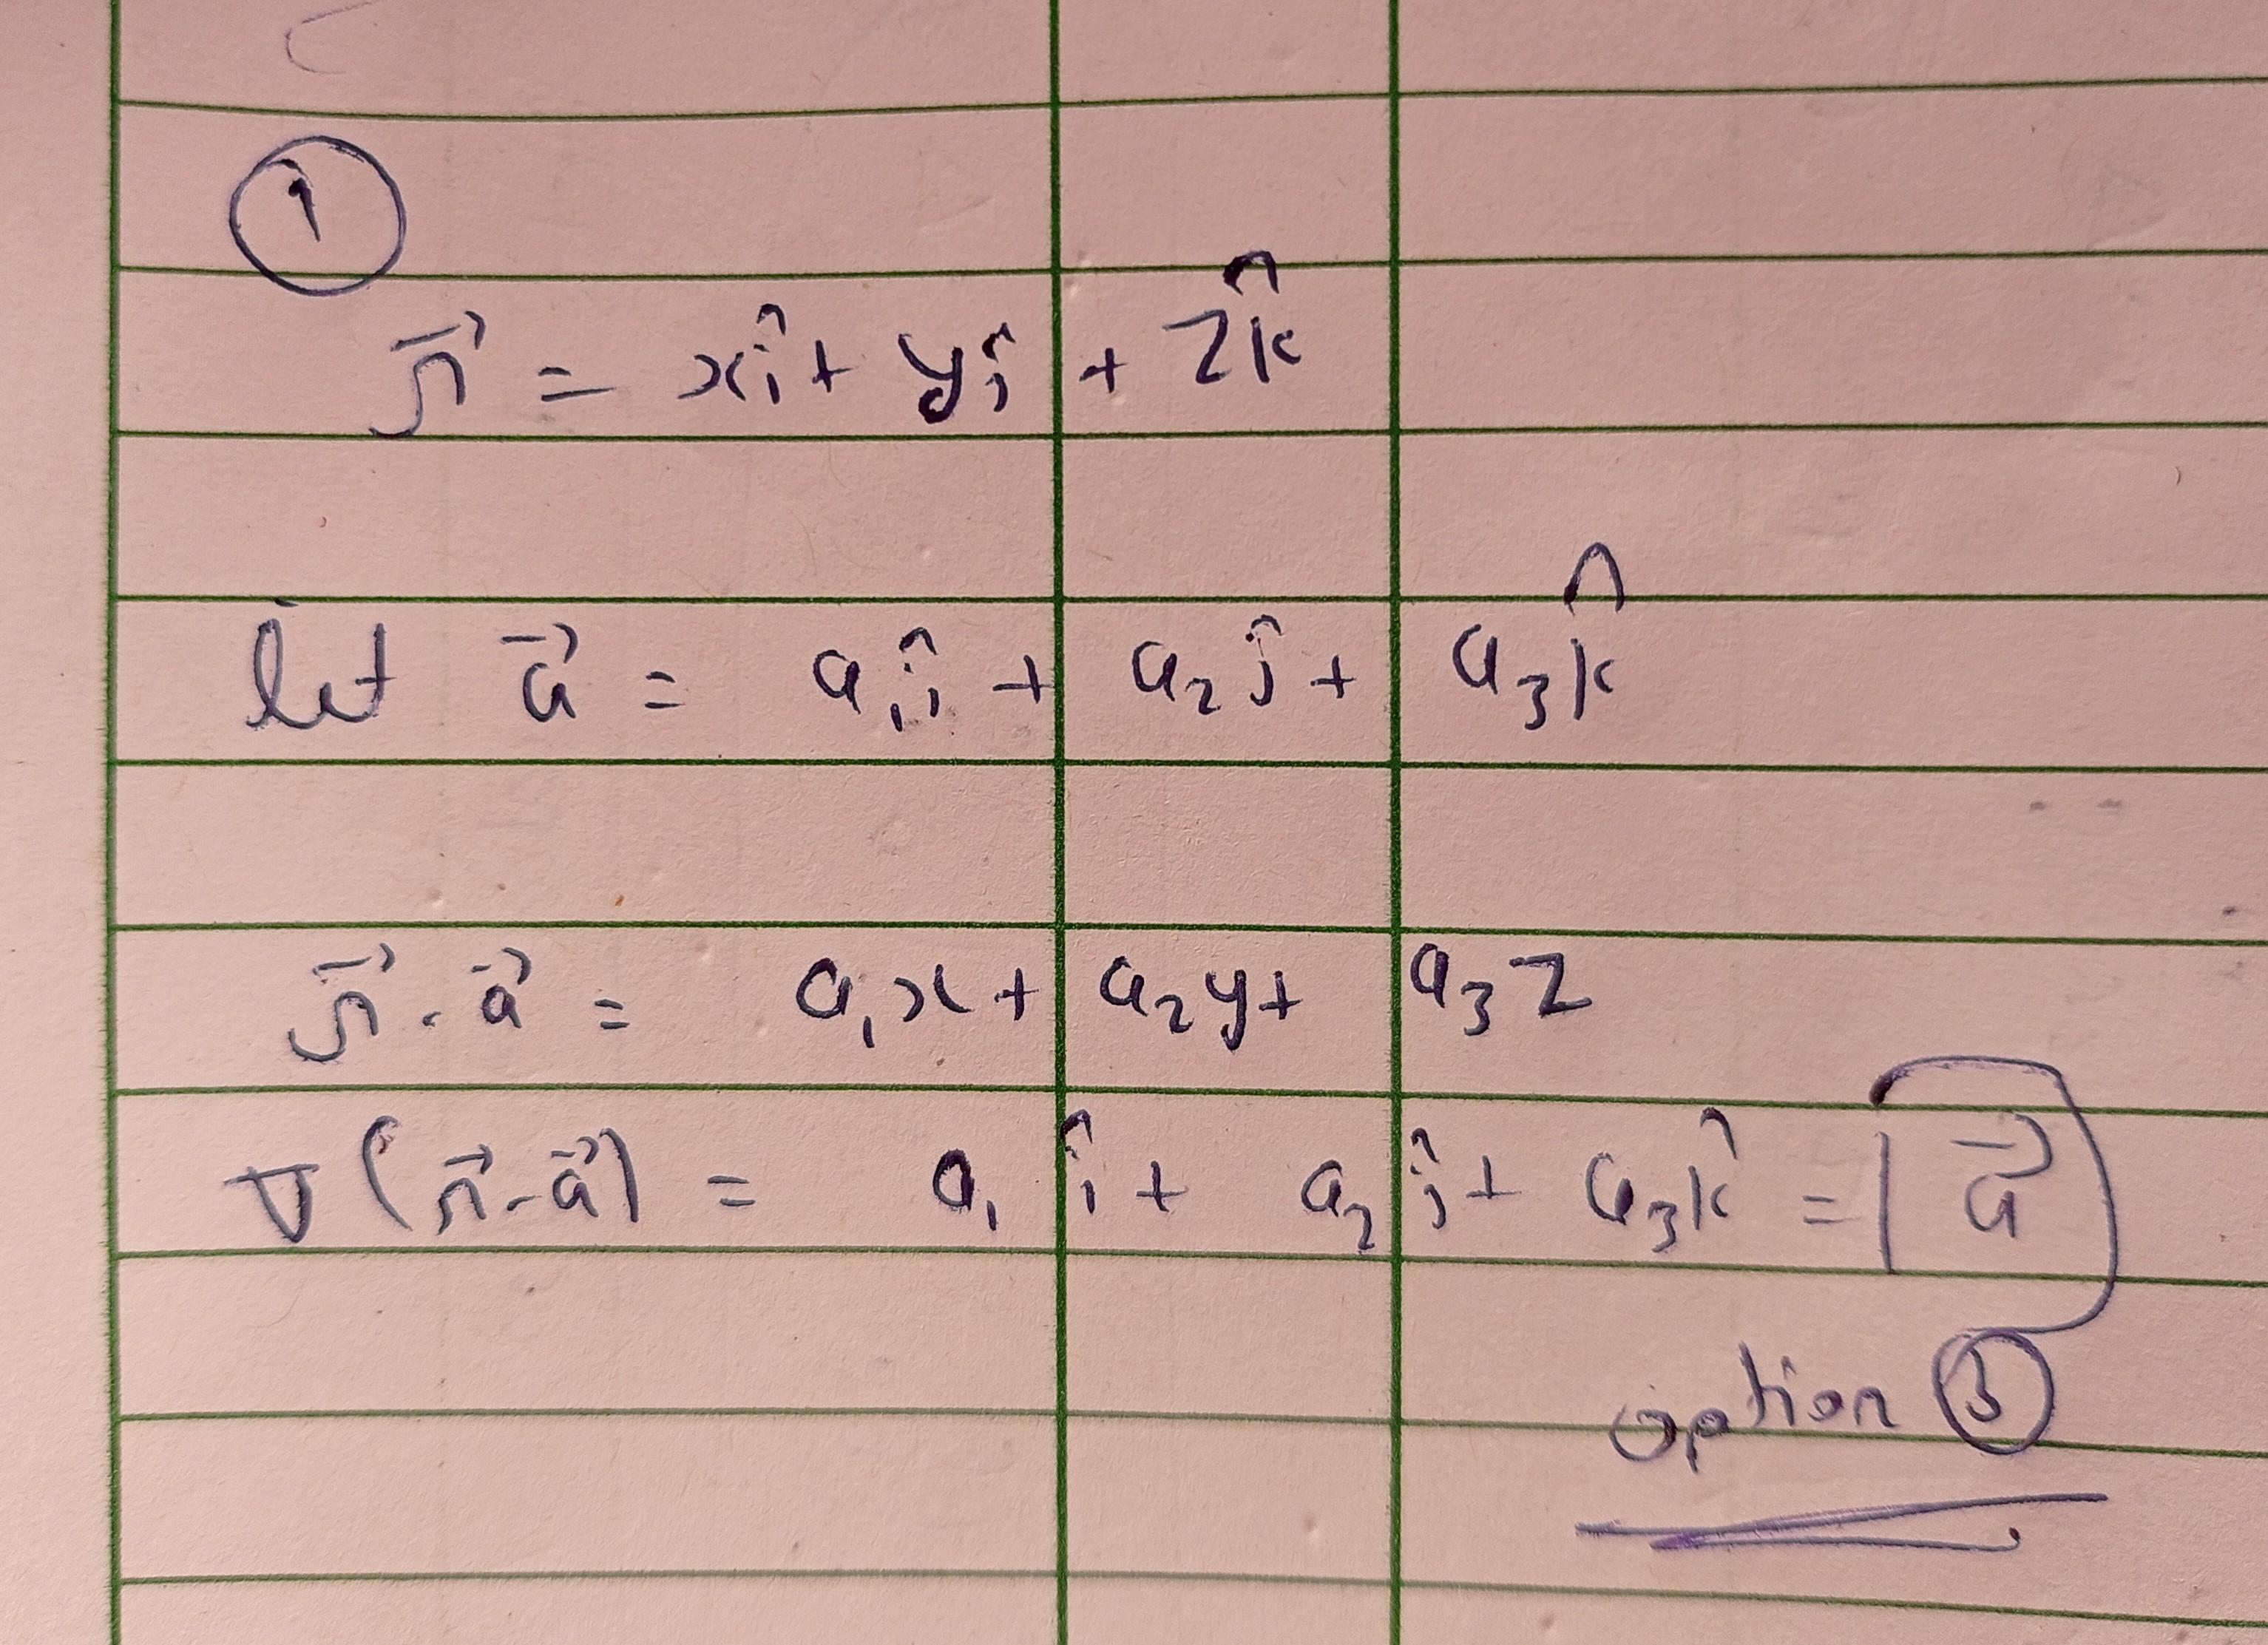 ①
r⃗ = xî + yĵ + zk̂
let a⃗ = a₁î + a₂ĵ + a₃k̂
r⃗ . a⃗ = a₁x + a₂y + a₃z
∇(r⃗ . a⃗) = a₁î + a₂ĵ + a₃k̂ = a⃗
option ③